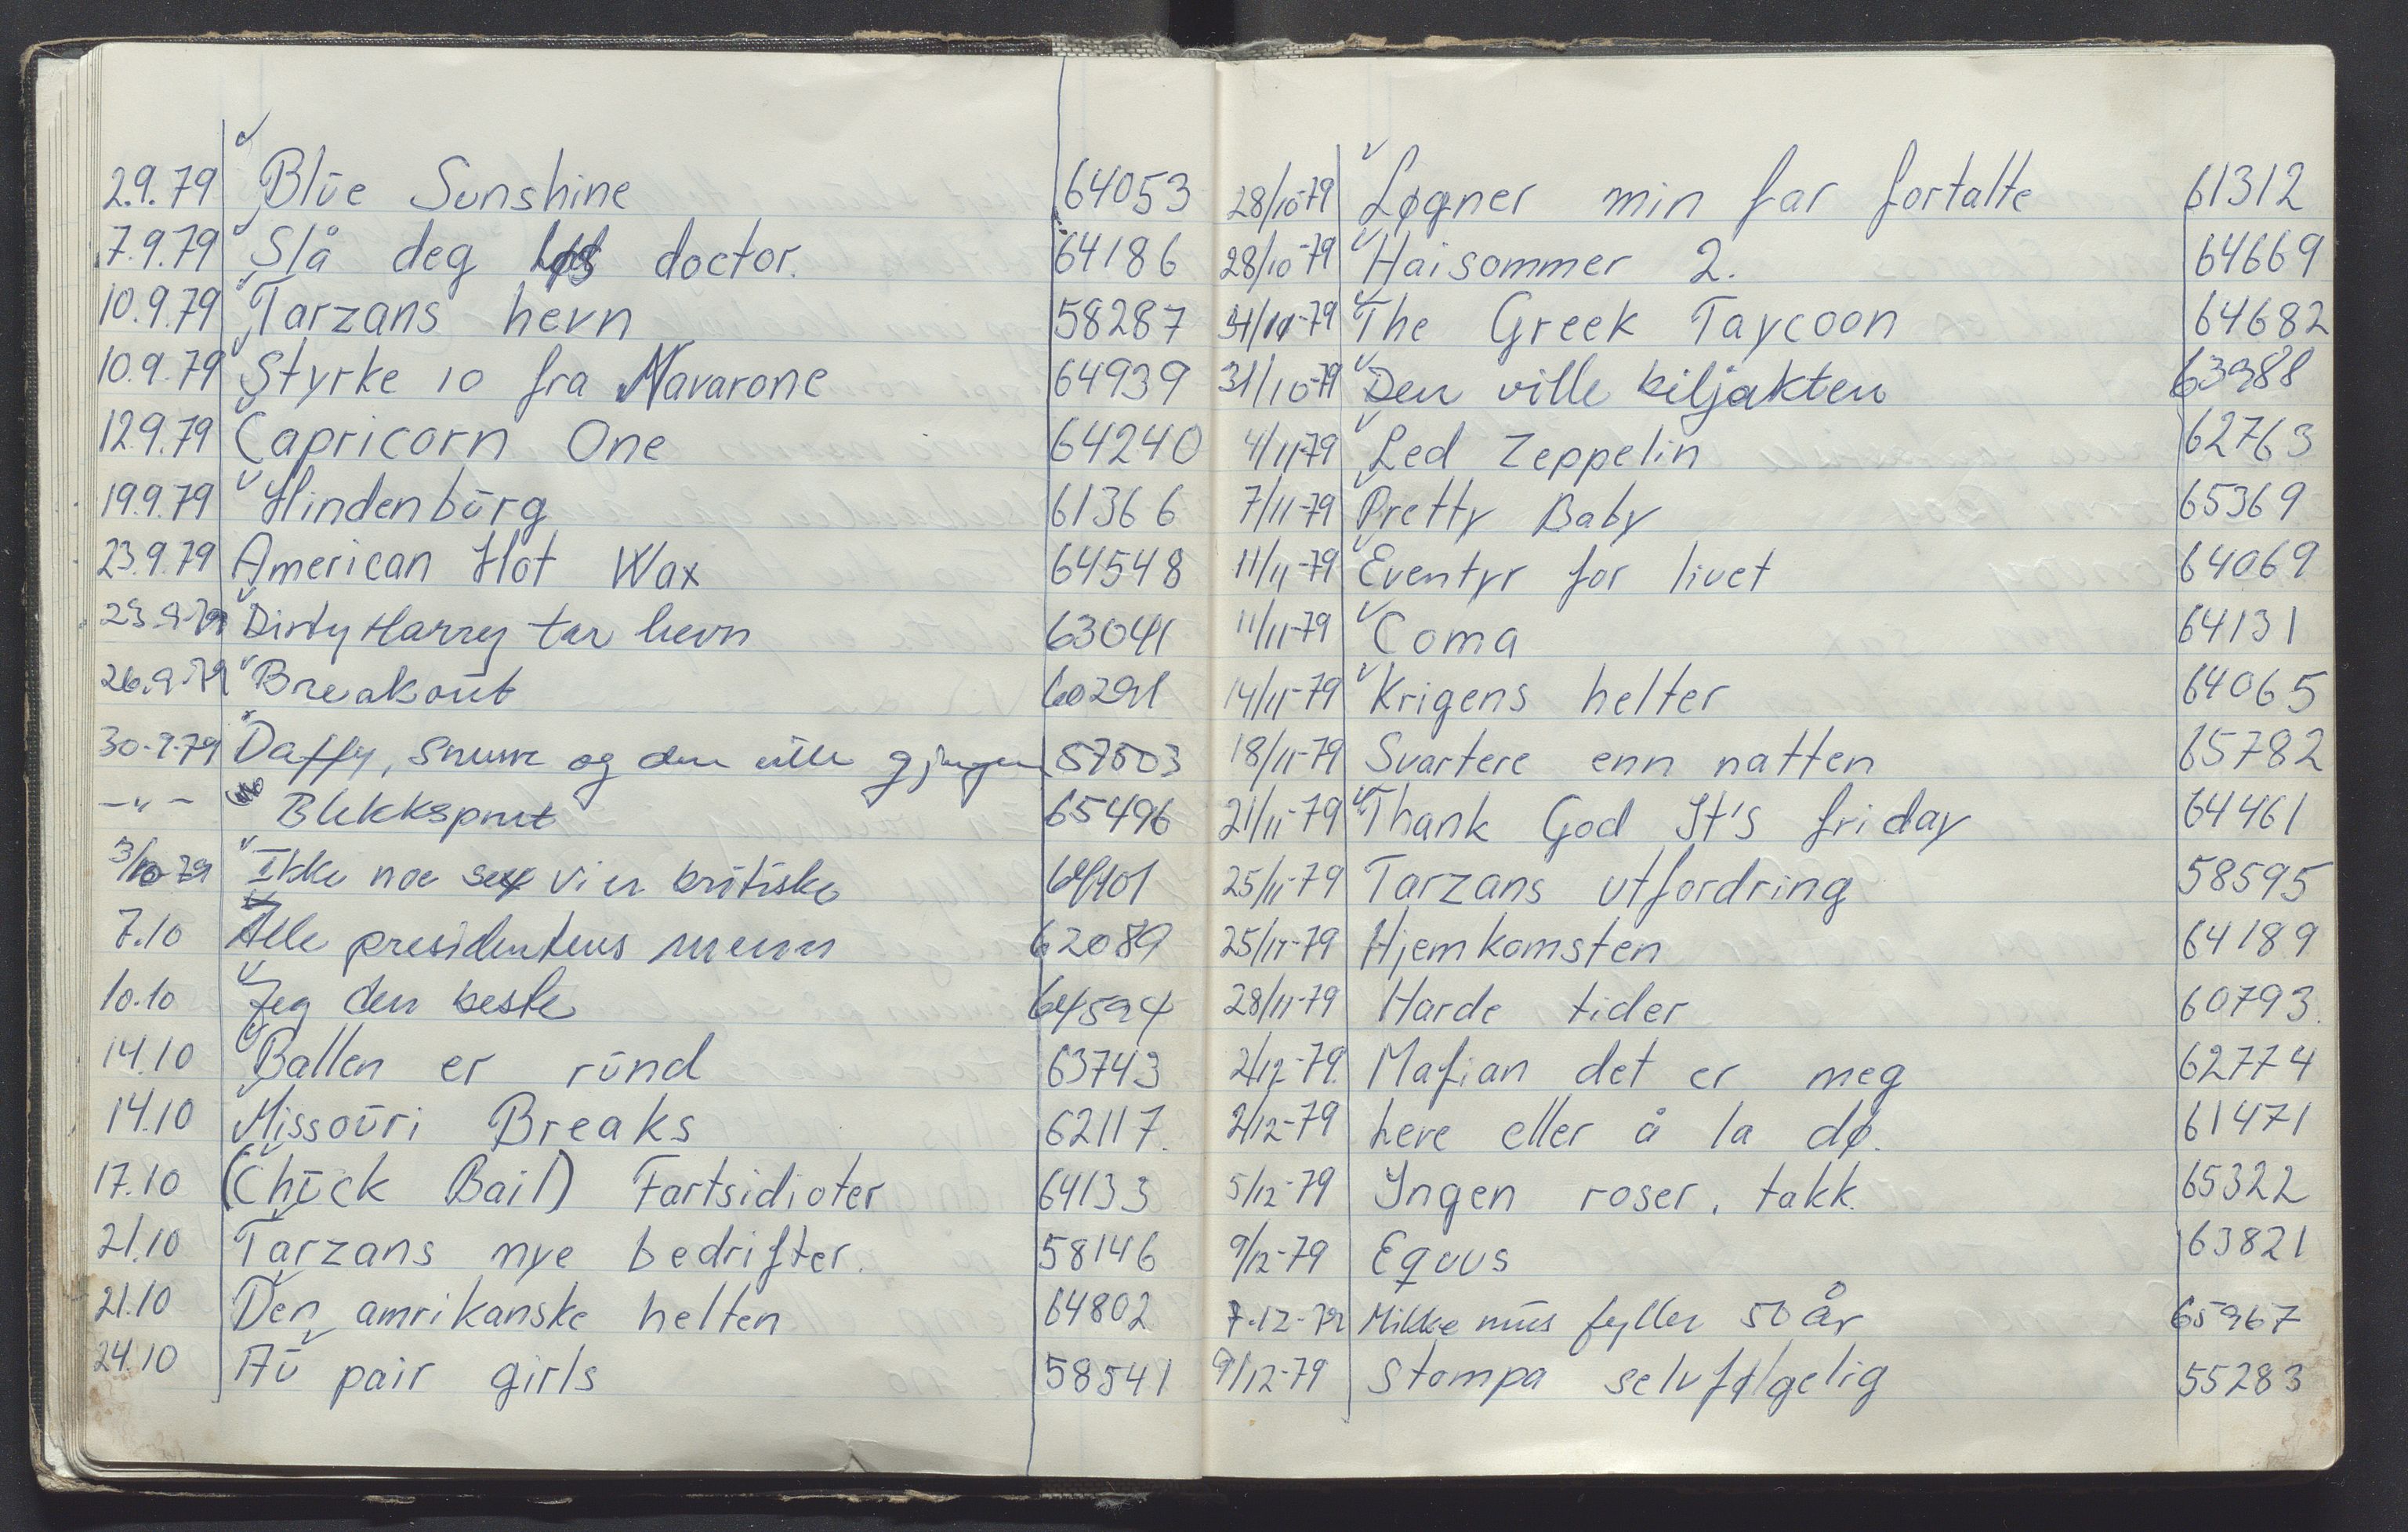 2.9.79 Blūe Sunshine 64053
7.9.79 Slå deg løs doctor. 64186
10.9.79 Tarzans hevn 58287
10.9.79 Styrke 10 fra Navarone 64939
12.9.79 Capricorn One 64240
19.9.79 Hindenbūrg 61366
23.9.79 American Hot Wax 64548
23.9.79 Dirty Harry tar hevn 63041
26.9.79 Breakoūt 60291
30.9.79 Daffy, Snurre og den ville gjengen 57503
-"- Blekksprut 65496
3/10-79 Ikke noe sex vi er brītiske
7.10 Alle presidentens menn 62089
10.10 Jeg den beste 64594
14.10 Ballen er rūnd 63743
14.10 Missoūri Breaks 62117.
17.10 (Chūck Bail) Fartsidioter 64133
21.10 Tarzans nye bedrifter. 58146
21.10 Den amrikanske helten 64802
24.10 Aū pair girls 58541
28/10-79 Løgner min far fortalte 61312
28/10-79 Haisommer 2. 64669
31/10-79 The Greek Taycoon 64682
31/10-79 Den ville biljakten 63988
4/11-79 Led Zeppelin 62763
7/11-79 Pretty Baby 65369
11/11-79 Eventyr for livet 64069
11/11-79 Coma 64131
14/11-79 Krigens helter 64065
18/11-79 Svartere enn natten 65782
21/11-79 Thank God It's friday 64461
25/11-79 Tarzans utfordring 58595
25/11-79 Hjemkomsten 64189
28/11-79 Harde tider 60793.
2/12-79. Mafian det er meg 62774
2/12-79 Leve eller å la dø. 61471
5/12-79 Ingen roser, takk. 65322
9/12-79 Equus 63821
7.12-79 Mikke mūs fyller 50 år 65967
9/12-79 Stompa selvfølgelig 55283